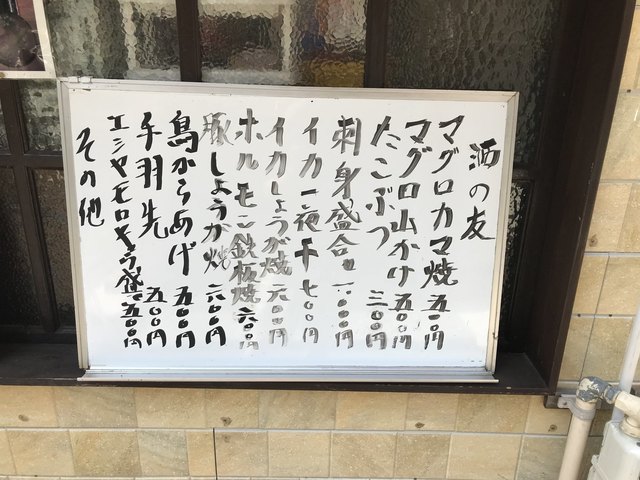 酒の友
マグロカマ焼 五〇〇円
マグロ山かけ 五〇〇円
たこぶつ 三〇〇円
刺身盛合せ 一、〇〇〇円
イカ一夜干 七〇〇円
イカしょうが焼 六〇〇円
ホルモン鉄板焼 六〇〇円
豚しょうが焼 六〇〇円
鳥からあげ 五〇〇円
手羽先 五〇〇円
エシャモロキュウ盛 五〇〇円
その他